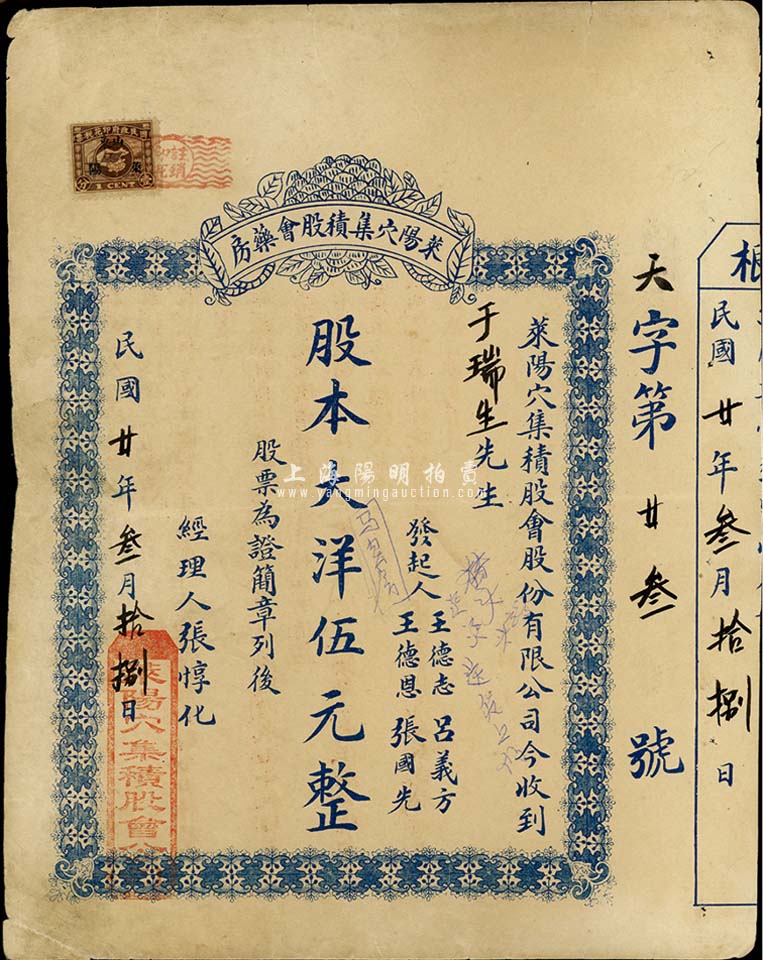 根
民國廿年叁月拾捌日
天字第廿叁號
萊陽穴集積股會藥房
萊陽穴集積股會股份有限公司今收到
于瑞生先生
發起人 王德志 呂義方
王德恩 張國先
股本大洋伍元整
股票為證簡章列後
經理人張惇化
民國廿年叁月拾捌日
萊陽穴集積股會
國民政府印花稅票
山東
萊陽
1 CENT
註銷
上海陽明拍賣
www.yangmingauction.com